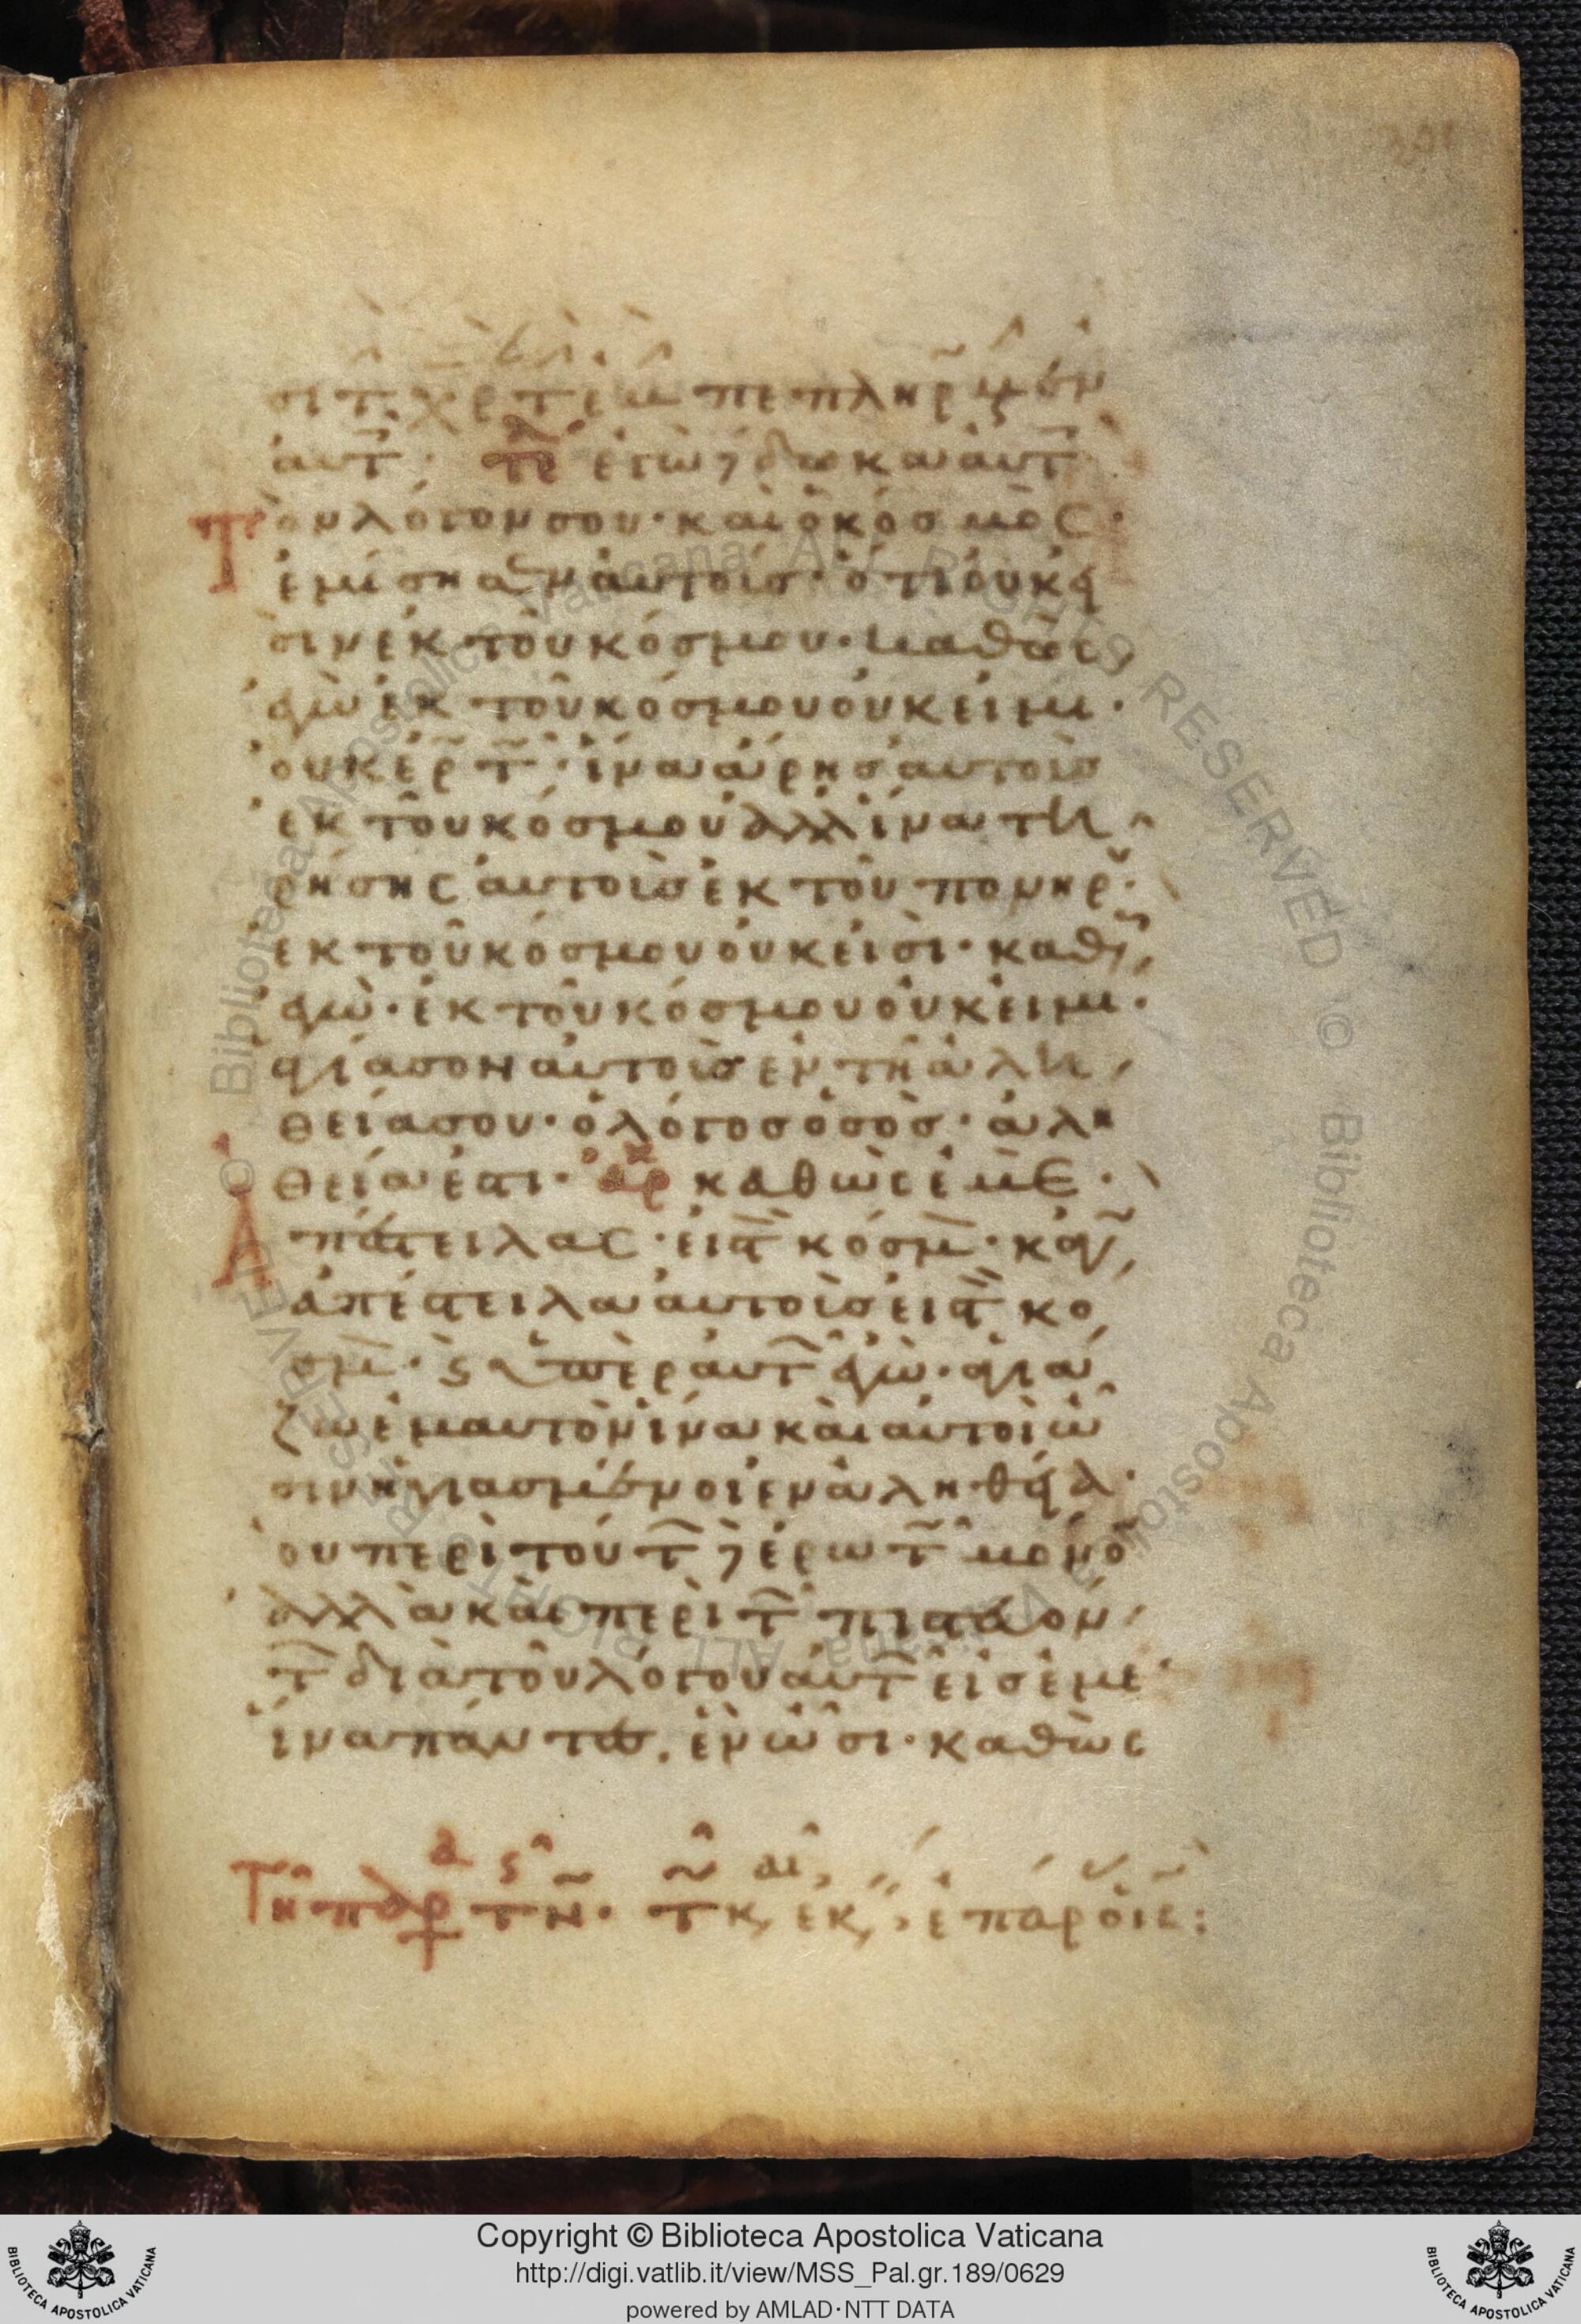 σι τ χρ τ εμ πεπληρωμέν
αυτ · τε εγὼ δέδωκα αυτ
Τὸν λόγον σου · καὶ ὁ κόσμος ·
ἐμίσησεν αὐτοὺς · ὅτι οὐκ εἰ
σὶν ἐκ τοῦ κόσμου · καθὼς
ἐγὼ ἐκ τοῦ κόσμου οὐκ εἰμι ·
οὐκ ἐρτ · ἵνα ἄρης αὐτοὺς
ἐκ τοῦ κόσμου ἀλλ ἵνα τη
ρήσης αὐτοὺς ἐκ τοῦ πονηρ ·
ἐκ τοῦ κόσμου οὐκ εἰσὶ · καθ
εγὼ · ἐκ τοῦ κόσμου οὐκ εἰμι ·
ἁγίασον αὐτοὺς ἐν τῆ ἀλη
θεία σου · ὁ λόγος ὁ σὸς · ἀλη
θεία ἐστι · αρ καθὼς ἐμὲ ·
Ἀπέστειλας · εἰς τ κόσμ · καγ
ἀπέστειλα αὐτοὺς εἰς τ κό
σμ · ϛ ὑπὲρ αὐτ ἐγὼ · ἁγιά
ζω ἐμαυτὸν ἵνα καὶ αὐτοὶ ὦ
σιν ἡγιασμένοι ἐν ἀληθεία ·
οὐ περὶ τούτ ἐρωτ μόνο
ἀλλὰ καὶ περὶ τ πιστευόν
τ διὰ τοῦ λόγου αὐτ εἰς ἐμέ
ἵνα πάντες ἐν ὦσι · καθὼς
Copyright © Biblioteca Apostolica Vaticana
http://digi.vatlib.it/view/MSS_Pal.gr.189/0629
powered by AMLAD·NTT DATA
BIBLIOTECA APOSTOLICA VATICANA
BIBLIOTECA APOSTOLICA VATICANA
© Biblioteca Apostolica Vaticana ALL RIGHTS RESERVED
© Biblioteca Apostolica Vaticana ALL RIGHTS RESERVED